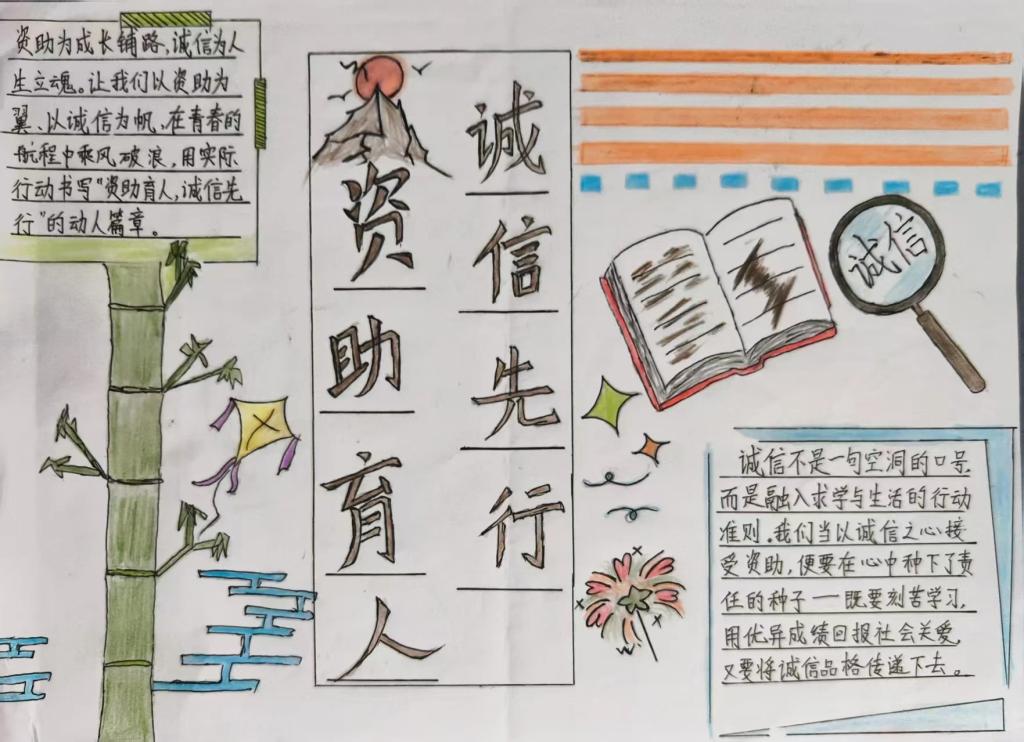 资助为成长铺路,诚信为人
生立魂。让我们以资助为
翼、以诚信为帆,在青春的
航程中乘风破浪,用实际
行动书写“资助育人,诚信先
行”的动人篇章。
资助育人
诚信先行
诚信
诚信不是一句空洞的口号
而是融入求学与生活的行动
准则。我们当以诚信之心接
受资助,便要在心中种下了责
任的种子——既要刻苦学习,
用优异成绩回报社会关爱,
又要将诚信品格传递下去。